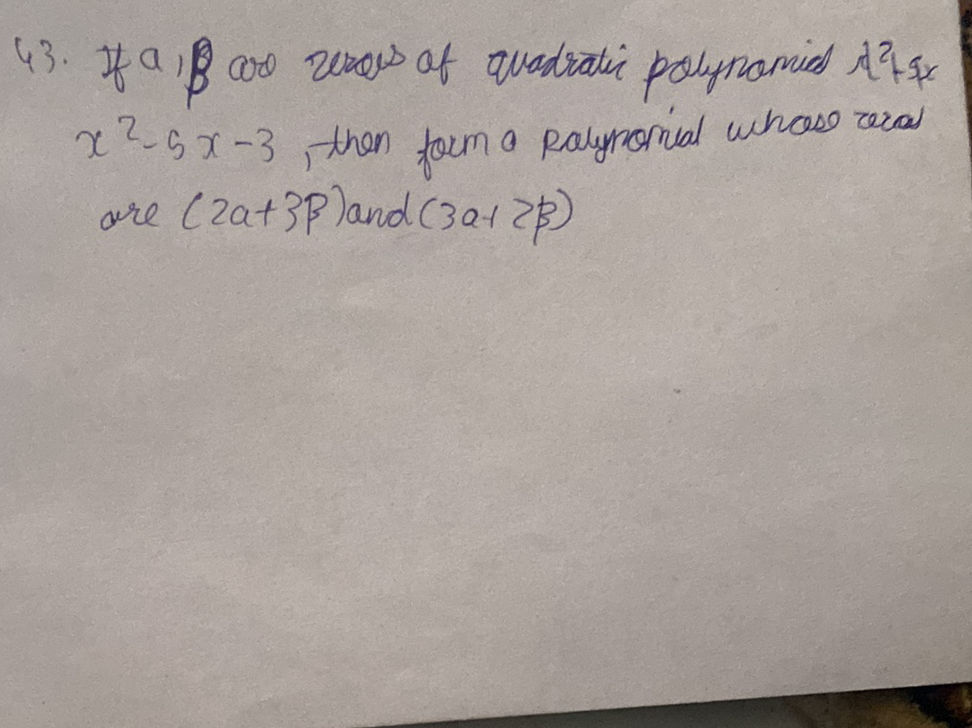 43. If a, β are zeroes of quadratic polynomial
x² - 5x - 3, then form a polynomial whose zeros
are (2a+3β) and (3a+2β)